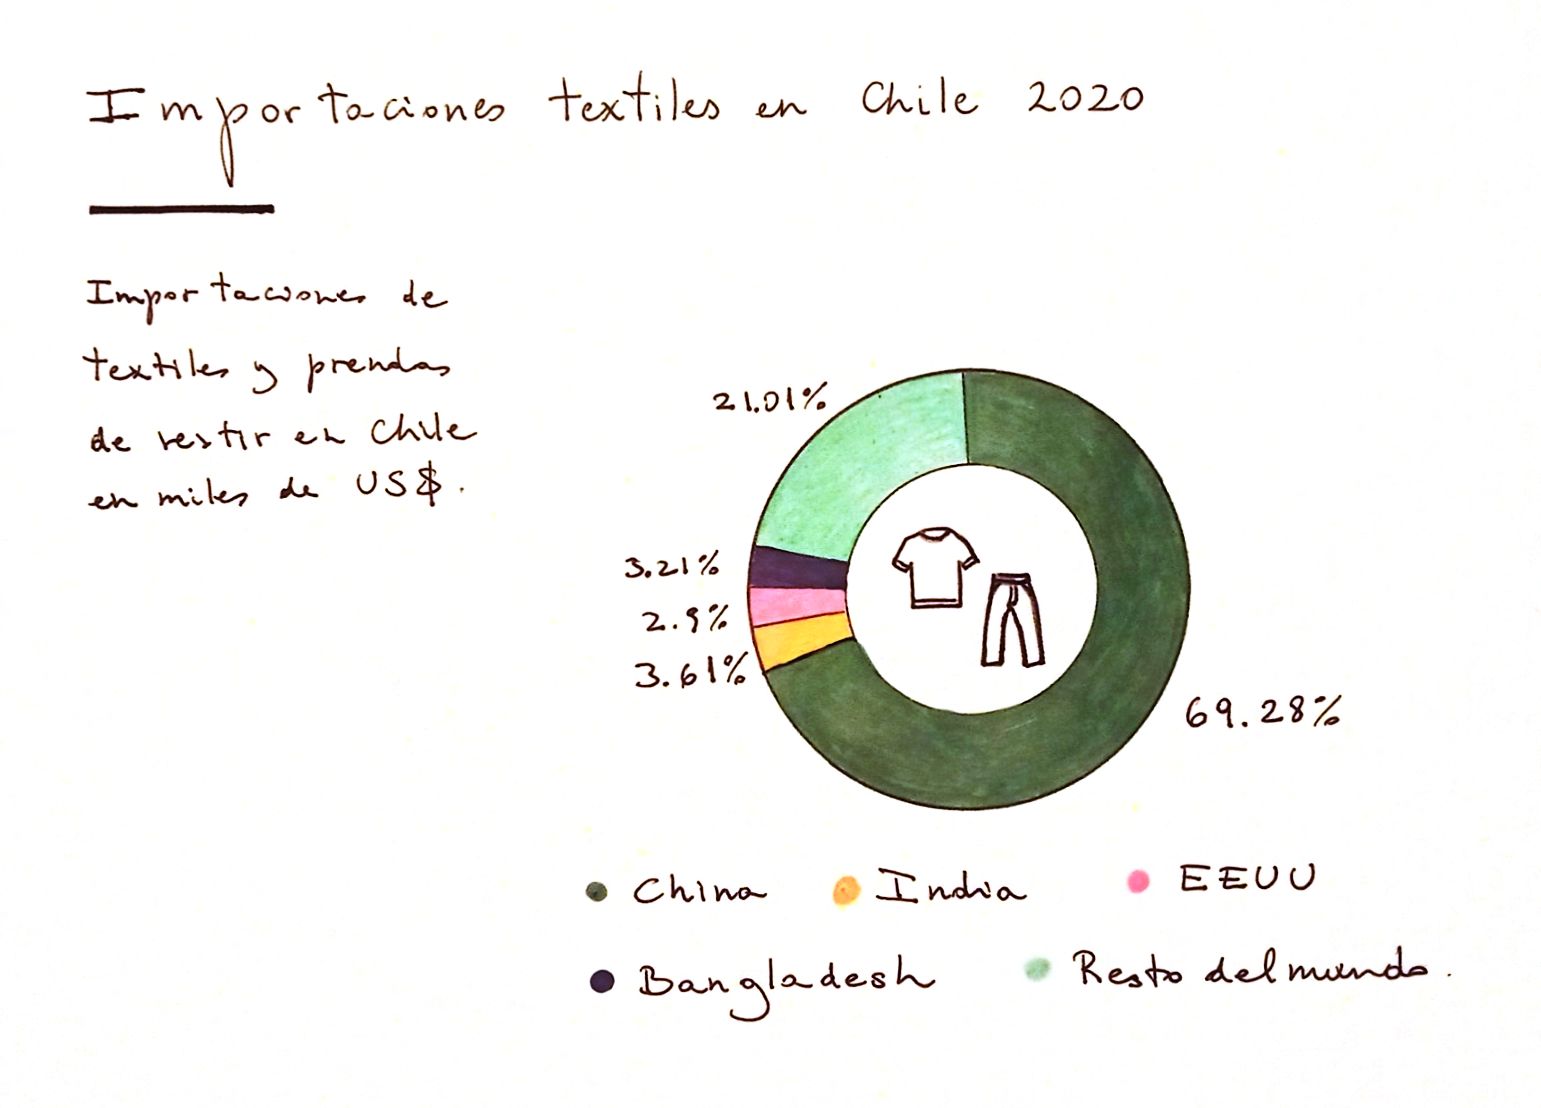 Importaciones textiles en Chile 2020
Importaciones de
textiles y prendas
de vestir en Chile
en miles de US$.
21.01%
3.21%
2.9%
3.61%
69.28%
China
India
EEUU
Bangladesh
Resto del mundo.